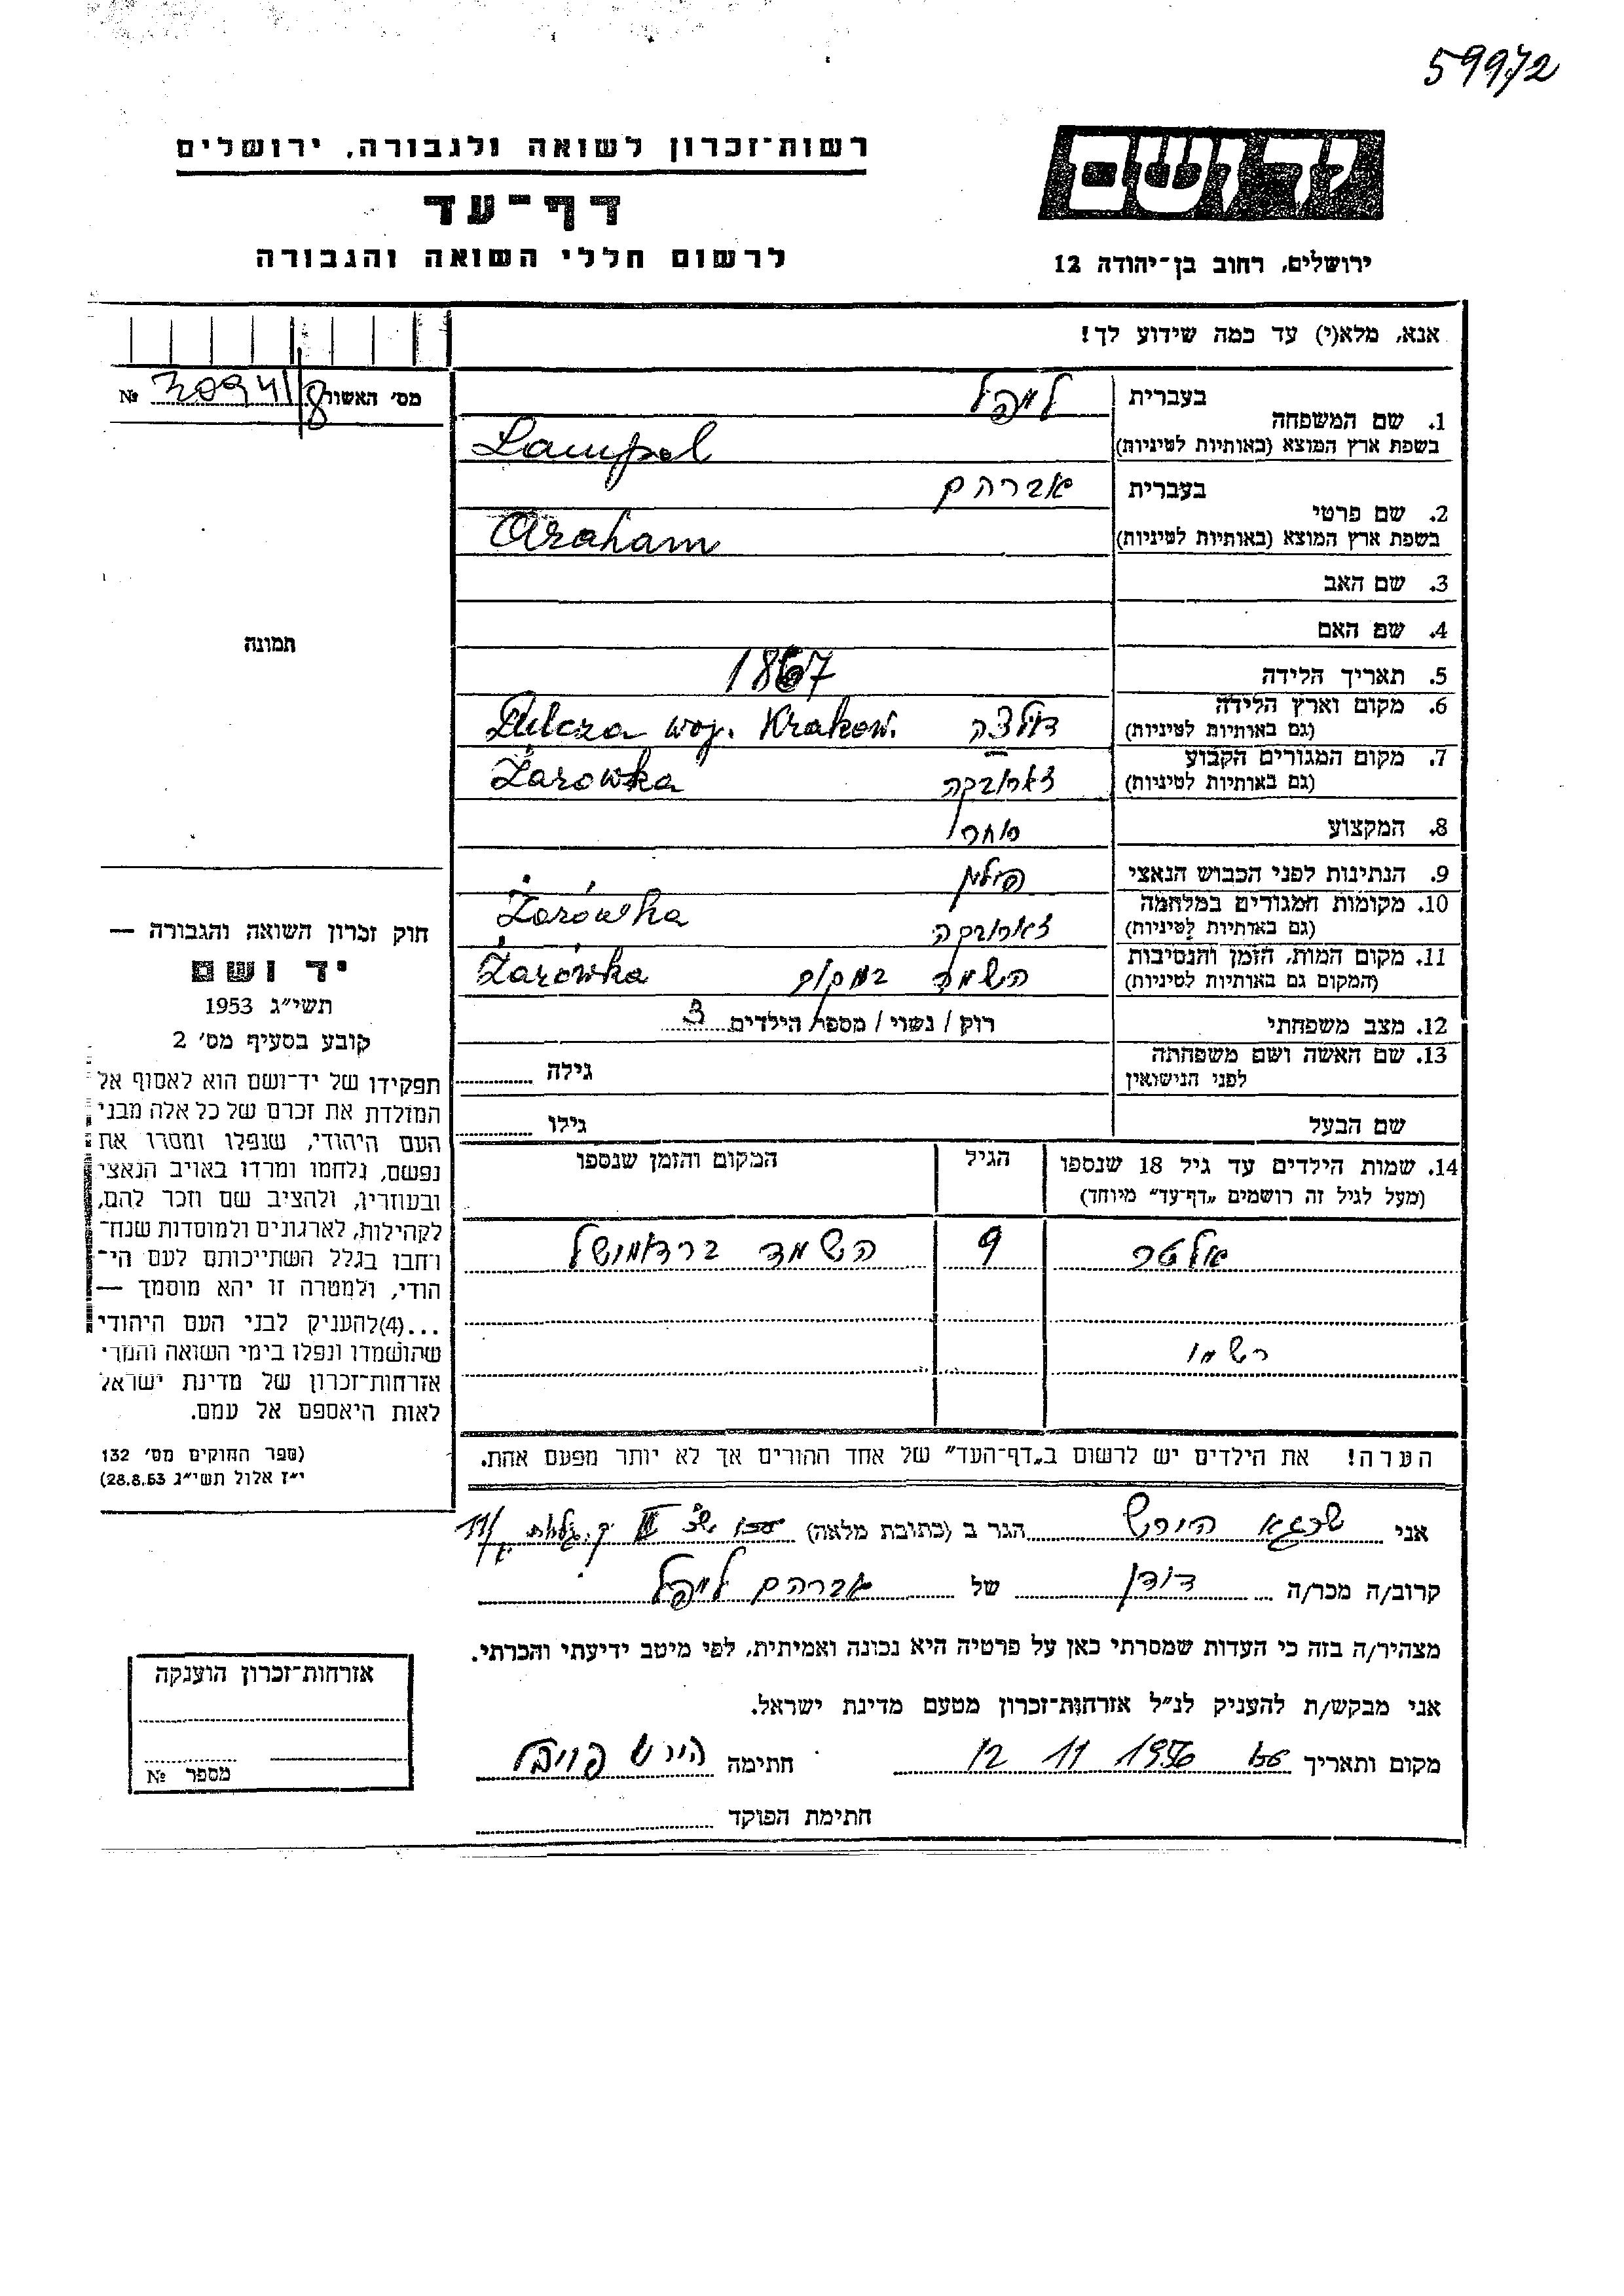 59972
רשות־זכרון לשואה ולגבורה, ירושלים
יד ושם
דף־עד
לרשום חללי השואה והגבורה
ירושלים, רחוב בן־יהודה 12
אנא, מלא(י) עד כמה שידוע לך!
מס׳ האשור № 30941/8
בעברית
1. שם המשפחה
בשפת ארץ המוצא (באותיות לטיניות) Lampel
בעברית אברהם
2. שם פרטי
בשפת ארץ המוצא (באותיות לטיניות) Araham
3. שם האב
4. שם האם
תמונה
5. תאריך הלידה 1867
6. מקום וארץ הלידה דולצה Dulcza woj. Krakow.
(גם באותיות לטיניות)
7. מקום המגורים הקבוע Żarowka
(גם באותיות לטיניות)
8. המקצוע סוחר
9. הנתינות לפני הכבוש הנאצי פולין
10. מקומות המגורים במלחמה Żarówka
(גם באותיות לטיניות)
11. מקום המות, הזמן והנסיבות השמד במקום Żarówka
(המקום גם באותיות לטיניות)
12. מצב משפחתי רוק / נשוי / מספר הילדים 3
13. שם האשה ושם משפחתה גילה
לפני הנישואין
שם הבעל גילו
14. שמות הילדים עד גיל 18 שנספו הגיל המקום והזמן שנספו
(מעל לגיל זה רושמים „דף־עד״ מיוחד)
אלטר 9 השמד
רשמו
הערה! את הילדים יש לרשום ב„דף־העד״ של אחד ההורים אך לא יותר מפעם אחת.
חוק זכרון השואה והגבורה —
יד ושם
תשי״ג 1953
קובע בסעיף מס׳ 2
תפקידו של יד־ושם הוא לאסוף אל
המולדת את זכרם של כל אלה מבני
העם היהודי, שנפלו ומסרו את
נפשם, נלחמו ומרדו באויב הנאצי
ובעוזריו, ולהציב שם וזכר להם,
לקהילות, לארגונים ולמוסדות שנח־
רחבו בגלל השתייכותם לעם הי־
הודי, ולמטרה זו יהא מוסמך —
...(4)להעניק לבני העם היהודי
שהושמדו ונפלו בימי השואה והמרי
אזרחות־זכרון של מדינת ישראל
לאות היאספם אל עמם.
(ספר החוקים מס׳ 132
י״ז אלול תשי״ג 28.8.53)
אני שרגא הירש הגר ב (כתובת מלאה)
קרוב/ה מכר/ה דודן של אברהם
מצהיר/ה בזה כי העדות שמסרתי כאן על פרטיה היא נכונה ואמיתית, לפי מיטב ידיעתי והכרתי.
אני מבקש/ת להעניק לנ״ל אזרחות־זכרון מטעם מדינת ישראל.
מקום ותאריך 12 11 1956 חתימה הירש
חתימת הפוקד
אזרחות־זכרון הוענקה
מספר №